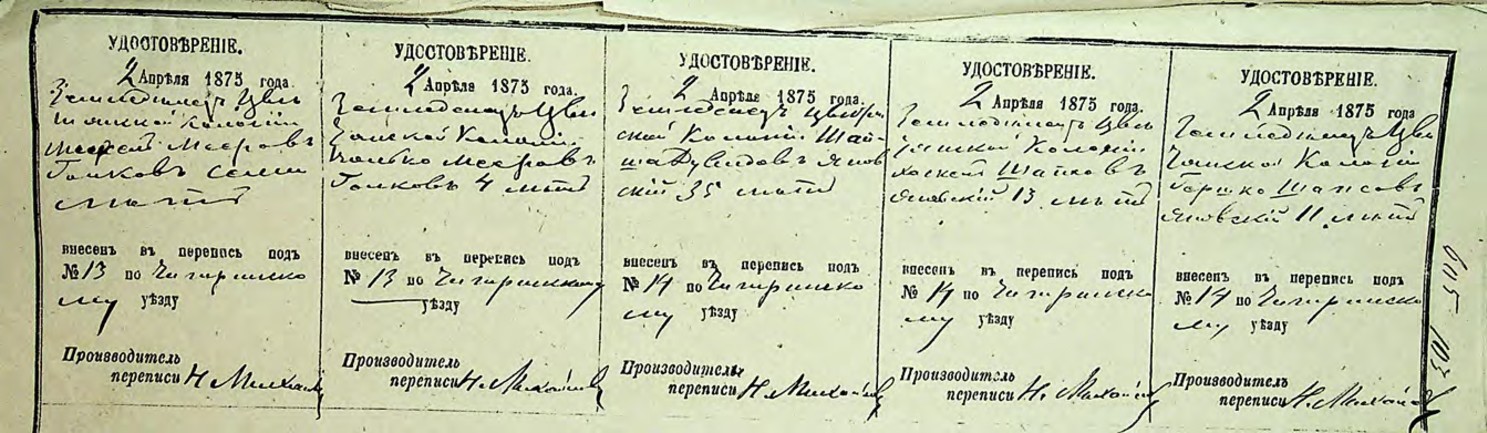 УДОСТОВѢРЕНІЕ.
2 Апрѣля 1875 года.
Земледѣлецъ Цвѣ
Колоніи
Мееровъ
Голковъ семи
лѣтъ
внесенъ въ перепись подъ
№ 13 по Чигиринско
му уѣзду
Производитель
переписи Н. Михай
УДОСТОВѢРЕНІЕ.
2 Апрѣля 1875 года.
Земледѣлецъ Цви
Колоніи
Мееровъ
Голковъ 4 лѣтъ
внесенъ въ перепись подъ
№ 13 по Чигиринскому
уѣзду
Производитель
переписи Н. Михай
УДОСТОВѢРЕНІЕ.
2 Апрѣля 1875 года.
Земледѣлецъ
ской Колоніи Шай
Дувидовъ Янов
скій 35 лѣтъ
внесенъ въ перепись подъ
№ 14 по Чигиринско
му уѣзду
Производитель
переписи Н. Михай
УДОСТОВѢРЕНІЕ.
2 Апрѣля 1875 года.
Земледѣлецъ Цви
Колоніи
Яновскій 13 лѣтъ
внесенъ въ перепись подъ
№ 14 по Чигиринско
му уѣзду
Производитель
переписи Н. Михай
УДОСТОВѢРЕНІЕ.
2 Апрѣля 1875 года
Земледѣлецъ Цви
Колоніи
Гершко Шапсовъ
Яновскій 11 лѣтъ
внесенъ въ перепись подъ
№ 14 по Чигиринско
му уѣзду
Производитель
переписи Н. Михай